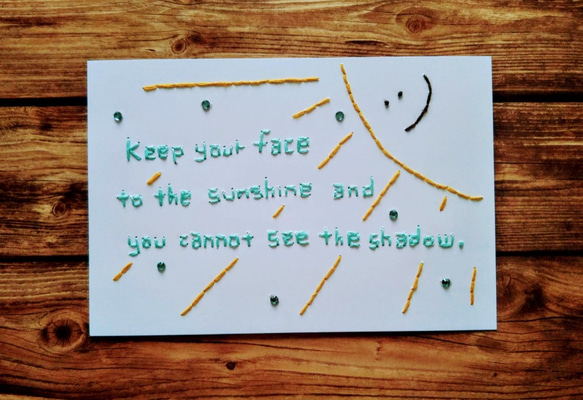 Keep your face
to the sunshine and
you cannot see the shadow.